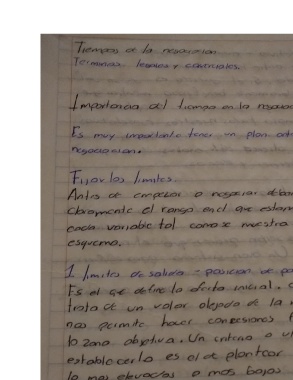 Tiempos de la negociacion
Terminos legales y comerciales.
Importancia del tiempo en la negoc
Es muy importante tener un plan ant
negociacion.
Fijar los limites.
Antes de empezar a negociar deb
claramente el rango en el que estam
cada variable tal como se muestra
esquema.
1 limites de salida - posicion de pa
Es el que define la oferta inicial.
trata de un valor alejado de la
nos permite hacer concesiones
la zona objetiva. Un criterio
establecerla es el de plantear
lo mas elevadas o mas bajas